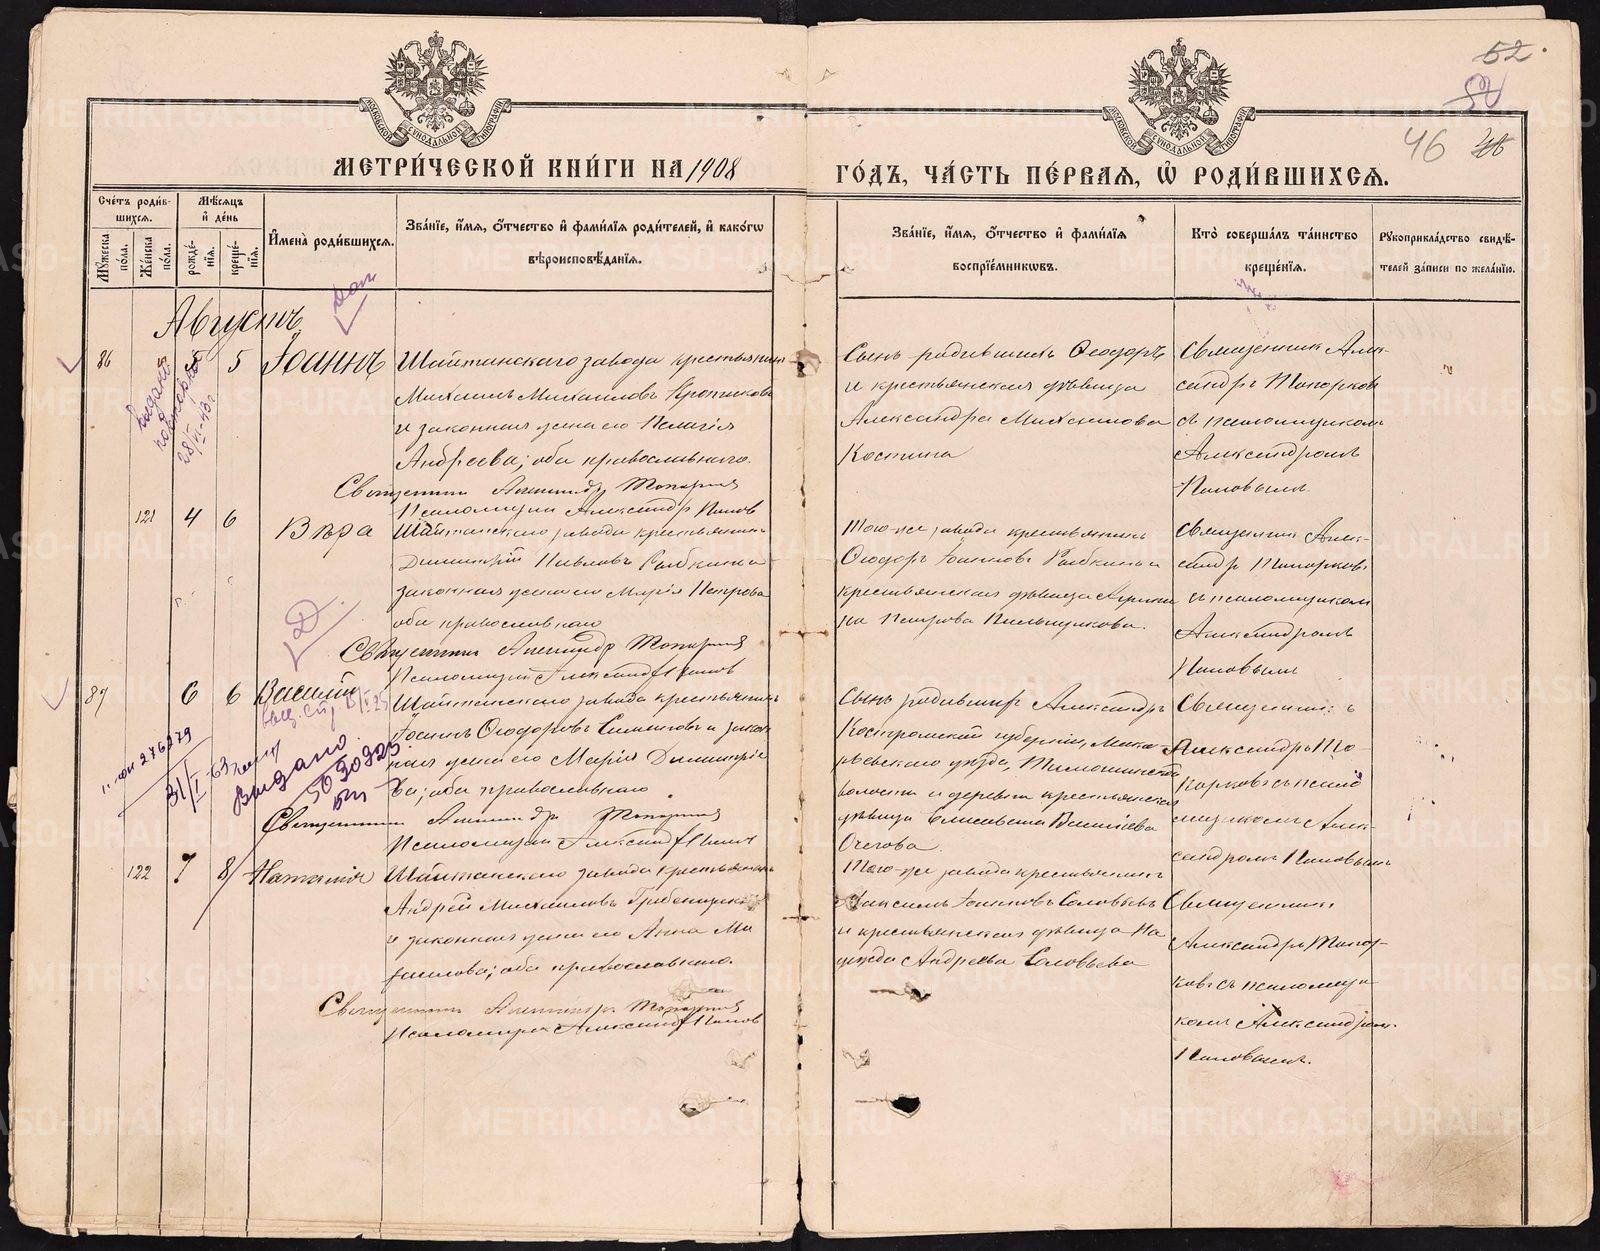 52.
46
МОСКОВСКОЙ СѴНОДАЛЬНОЙ ТИПОГРАФІИ
МОСКОВСКОЙ СѴНОДАЛЬНОЙ ТИПОГРАФІИ
МЕТРИ́ЧЕСКОЙ КНИ́ГИ НА 1908
ГО́ДЪ, ЧА́СТЬ ПЕ́РВАЯ, Ѡ РОДИ́ВШИХСЯ.
Сче́тъ роди́в-
шихся.
Мѣсяцъ
и де́нь
Мꙋжеска по́ла.
Же́нска по́ла.
рожде́-
нїя.
креще́-
нїя.
Имена̀ роди́вшихся.
Зва́нїе, и́мя, о́тчество и фами́лїя роди́телей, и како́гѡ
вѣроисповѣ́данїя.
Зва́нїе, и́мя, о́тчество и фами́лїя
воспрїе́мникѡвъ.
Кто̀ соверша́лъ та́инство
креще́нїя.
Рꙋкоприкла́дство свидѣ́-
телей за́писи по жела́нїю.
Августъ
86
5
5
Іоаннъ
Шайтанскаго завода крестьянинъ
Михаилъ Михаиловъ
и законная жена его Пелагія
Андреева; оба православнаго.
Священникъ Александр Топорков
Псаломщик Александр Попов
Сынъ родившихъ Ѳеодоръ
и крестьянская дѣвица
Александра Михаилова
Костина
Священник Алек-
сандръ Топорковъ
съ псаломщикомъ
Александромъ
Поповымъ.
121
4
6
Вѣра
Шайтанскаго завода крестьянинъ
Димитрій Павловъ Рыбкинъ и
законная жена его Марія Петрова
оба православнаго
Священникъ Александр Топорков
Псаломщик Александр Попов
Того-же завода крестьянинъ
Ѳеодоръ Іоанновъ Рыбкинъ и
крестьянская дѣвица
на Петрова Пильщикова.
Священник Алек-
сандр Топорковъ
съ псаломщикомъ
Александромъ
Поповымъ
87
6
6
Василій
Шайтанскаго завода крестьянинъ
Іоаннъ Ѳеодоровъ и закон
ная жена его Марія Димитріе
ва; оба православнаго
Священникъ Александр Топорков
Псаломщик Александр Попов
Сынъ родившихъ Александръ
Костромской губерніи, Мака
рьевскаго уѣзда,
волости и деревни крестьянская
дѣвица Елисавета Василіева
Священникъ
Александръ То-
порковъ съ псало
мщикомъ Алек-
сандромъ Поповымъ
Выдано
122
7
8
Наталія
Шайтанскаго завода крестьянинъ
Андрей Михаиловъ
и законная жена его Анна Ми
хаилова; оба православнаго.
Священникъ Александр Топорков
Псаломщик Александр Попов
Того-же завода крестьянинъ
Максимъ Іоанновъ Соловьевъ
и крестьянская дѣвица На
дежда Андреева Соловьева
Священникъ
Александръ Топор-
ковъ съ псаломщи
комъ Александромъ
Поповымъ.
METRIKI.GASO-URAL.RU